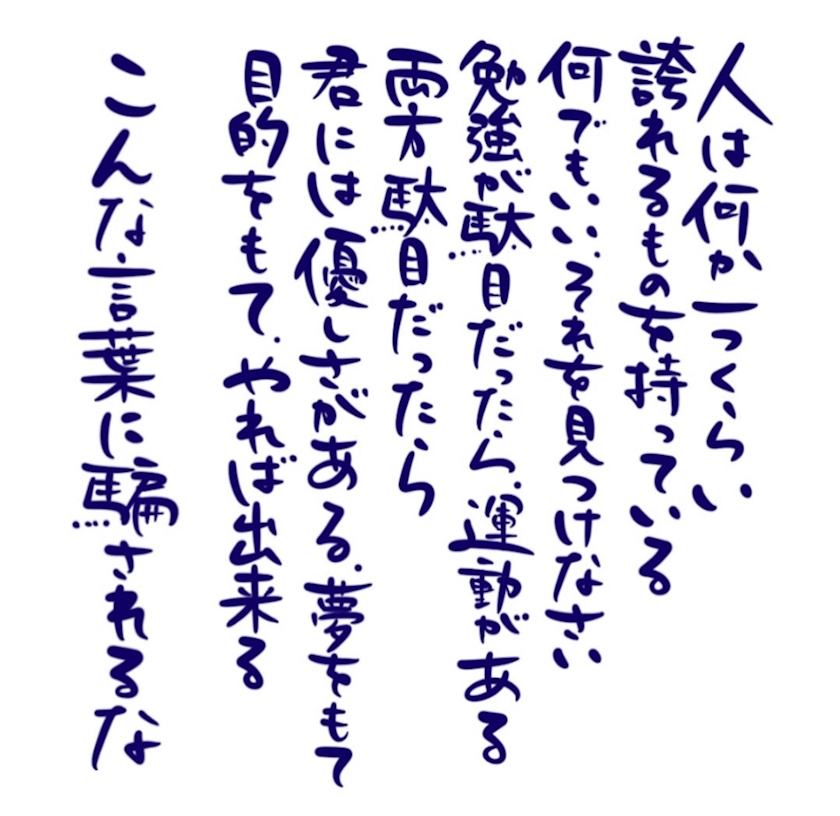 人は何か一つくらい
誇れるもの を持っている
何でもいい.それを見つけなさい
勉強が駄目だったら.運動がある
両方駄目だったら
君には優しさがある.夢をもて
目的をもて.やれば出来る
こんな言葉に騙されるな